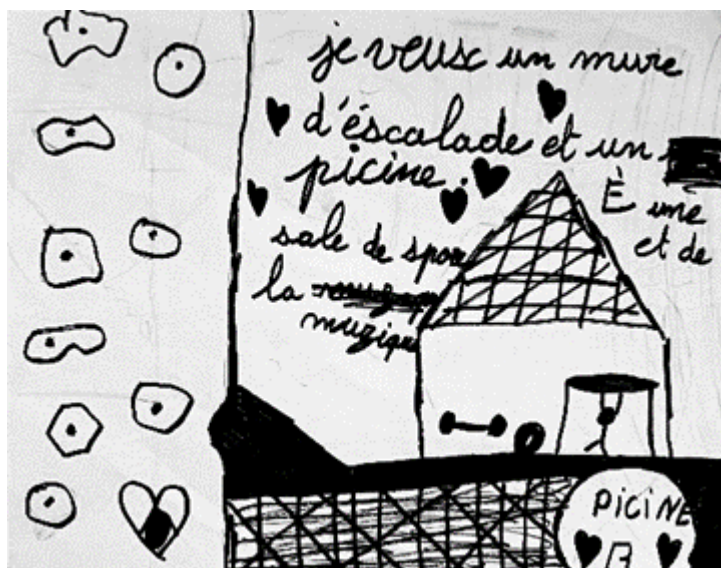 je veux un mure
d'éscalade et un
picine.
È une
sale de spor et de
la
muzique
PICINE